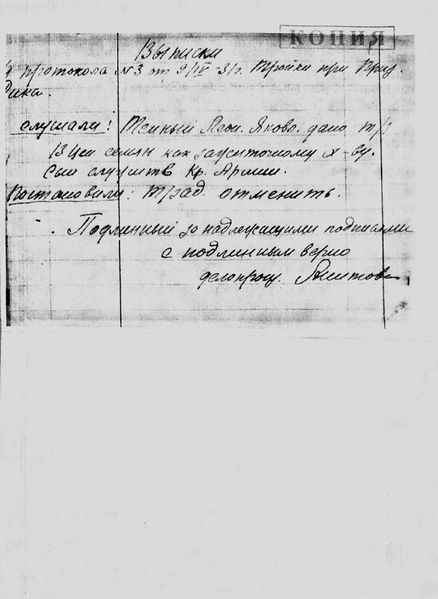 КОПИЯ
Выписки
протокола №3 от 9/IV-31г. Тройки при
слушали: Темный Леон. Яковл. дано тв/з
13 цен семян как зажиточному х-ву.
Сын служит в Кр. Армии.
Постановили: тв/зад. отменить.
Подлинный за надлежащими подписями
с подлинным верно
делопроизв.